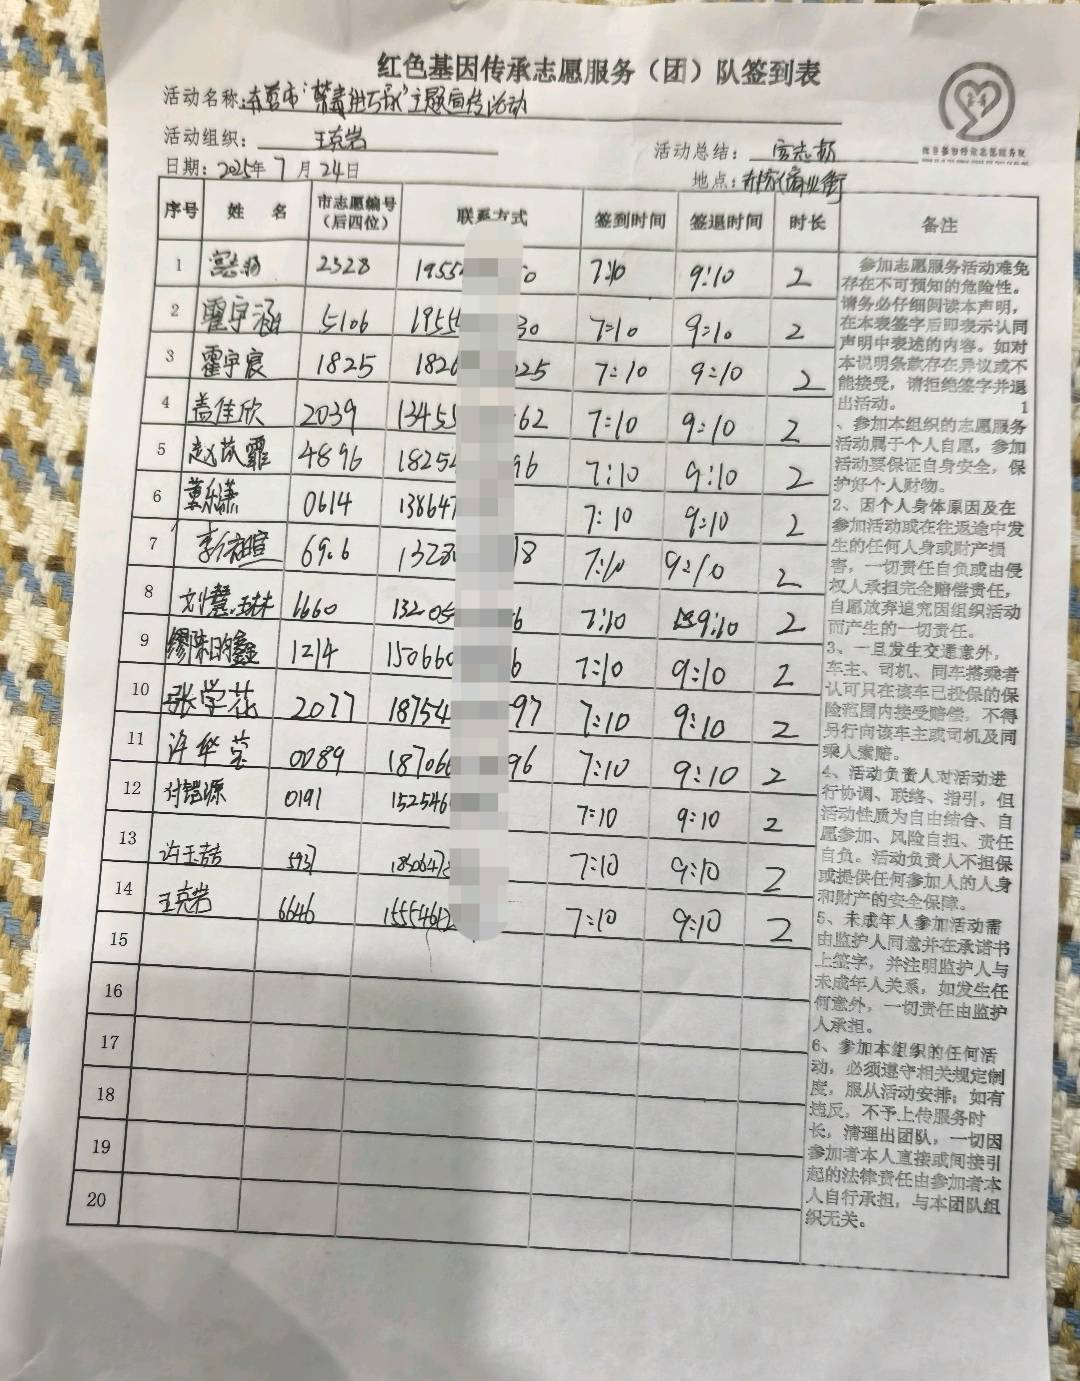 红色基因传承志愿服务（团）队签到表
活动名称：东营市"禁毒进万家"主题宣传活动
活动组织： 王克岩
活动总结： 志
日期：2025年7月24日
地点： 商业街
序号 姓 名 市志愿编号（后四位） 联系方式 签到时间 签退时间 时长 备注
1 2328 1955 0 7:10 9:10 2
2 霍宇涵 5106 1955 30 7:10 9:10 2
3 霍宇宸 1825 182 25 7:10 9:10 2
4 盖佳欣 2039 13455 62 7:10 9:10 2
5 赵 霏 4896 1825 96 7:10 9:10 2
6 0614 13864 7:10 9:10 2
7 李 暄 6906 1328 18 7:10 9:10 2
8 刘慧琳 1660 13205 6 7:10 9:10 2
9 鑫 1214 150660 6 7:10 9:10 2
10 张学花 2077 18754 97 7:10 9:10 2
11 许华莹 0089 18706 96 7:10 9:10 2
12 付 源 0191 152546 7:10 9:10 2
13 许玉喆 5937 1850647 7:10 9:10 2
14 王克岩 6646 1555461 7:10 9:10 2
15
16
17
18
19
20
参加志愿服务活动难免
存在不可预知的危险性。
请务必仔细阅读本声明，
在本表签字后即表示认同
声明中表述的内容。如对
本说明条款存在异议或不
能接受，请拒绝签字并退
出活动。 1
、参加本组织的志愿服务
活动属于个人自愿，参加
活动要保证自身安全，保
护好个人财物。
2、因个人身体原因及在
参加活动或在往返途中发
生的任何人身或财产损
害，一切责任自负或由侵
权人承担完全赔偿责任，
自愿放弃追究因组织活动
而产生的一切责任。
3、一旦发生交通意外，
车主、司机、同车搭乘者
认可只在该车已投保的保
险范围内接受赔偿，不得
另行向该车主或司机及同
乘人索赔。
4、活动负责人对活动进
行协调、联络、指引，但
活动性质为自由结合、自
愿参加、风险自担、责任
自负。活动负责人不担保
或提供任何参加人的人身
和财产的安全保障。
5、未成年人参加活动需
由监护人同意并在承诺书
上签字，并注明监护人与
未成年人关系，如发生任
何意外，一切责任由监护
人承担。
6、参加本组织的任何活
动，必须遵守相关规定制
度，服从活动安排；如有
违反，不予上传服务时
长，清理出团队，一切因
参加者本人直接或间接引
起的法律责任由参加者本
人自行承担，与本团队组
织无关。